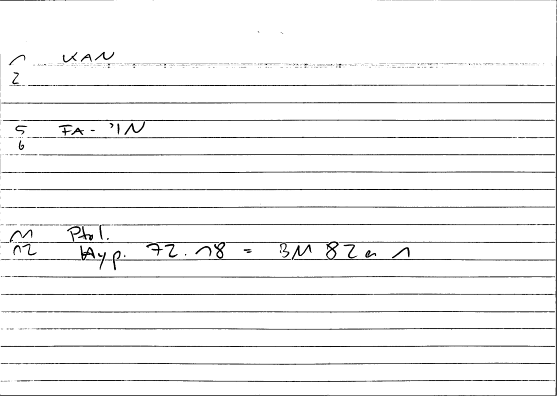 1 KAN
2
5 FA-'IN
6
11 Ptol.
12 Hyp. 72.18 = BM 82a 1